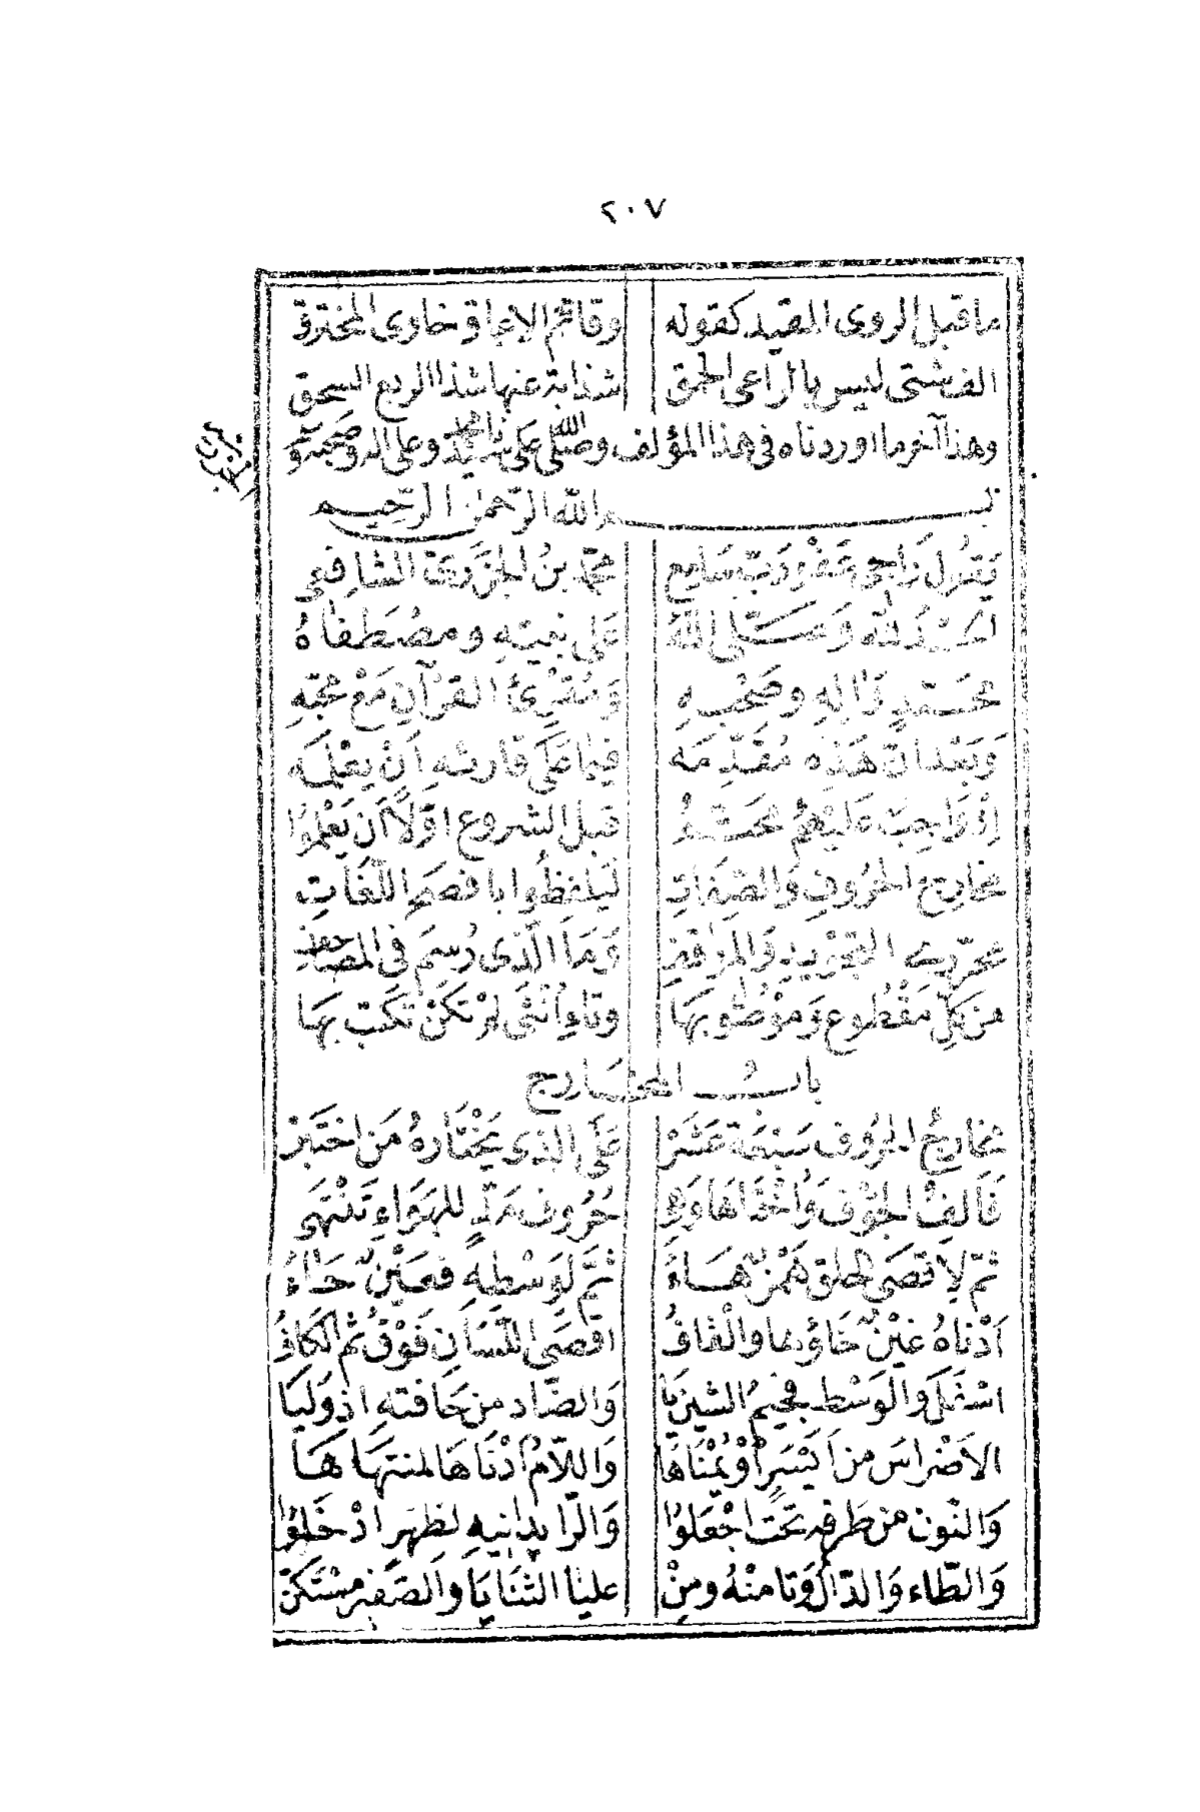 ٢٠٧
ما قبل الروى المقيد كقوله وقاتم الاعماق خاوى المخترق
الف شتى ليس بالراعى الحمق شذابة عنها شذا الربع السحق
وهذا آخر ما اوردناه فى هذا المؤلف وصلى الله على سيدنا محمد وعلى اله وصحبه و
بسم الله الرحمن الرحيم
يَقُولُ رَاجى عَفْوِ رَبٍّ سَامِعِ محمّد بنُ الجَزَرِى الشافِعى
الحَمْدُ لله وَصَلَّى اللهُ عَلى نبيّهِ ومصْطَفاهُ
محَمّدٍ وَاٰلِهِ وصَحْبِهِ وَمُقْرِئِ القرْآنِ مَعْ مُحبّهِ
وَبَعْدُ انّ هَذِهِ مُقَدّمَه فيما عَلَى قارئه اَنْ يعْلَمَه
اذْ وَاجِبٌ عَلَيْهِمُ مُحَتّمُ قبل الشروع اوّلًا اَن يَعْلموا
مخارج الحُرُوفِ وَالصّفَاتِ ليَلفظُوا بافصحِ اللّغَاتِ
محرّرى التجْوِيدِ وَالمَوَاقفِ وَمَا الّذى رُسمَ فى المصاحف
من كلّ مَقْطُوع وَمَوْصُولٍ بهَا وتاء أنْثَى لمْ تكنْ تكتب بهَا
بابُ المخارج
مخارجُ الحرُوف سَبْعَة عَشَرْ عَلَى الّذى يَخْتَارهُ مَن اختَبَرْ
فَالِفُ الجَوْف وَاُخْتَاهَا وَهى حُرُوف مَدٍّ للهَوَاءِ تَنْتَهى
ثمّ لِاقصَى الحلق همْزٌ هَاءُ ثمّ لوَسْطهِ فعَيْنٌ حَاءُ
اَدْناهُ غيْنٌ خَاؤها والْقافُ اقصَى اللّسَانِ فَوْقُ ثمّ الكَافُ
اسْفَلُ والوَسْط فجيمُ الشين يا وَالضّاد من حَافتهِ اذ وَليَا
الاَضْراسَ من اَيْسَرَ اَوْ يُمْنَاهَا وَاللّامُ اَدْنَاهَا لمنتهَاهَا
وَالنّون من طَرفه تحْت اجْعَلوُا وَالرا يدانيهِ لظهرٍ ادْخَلوُا
وَالطّاء وَالدّال وَتا منْهُ ومِنْ عليَا الثنَايَا وَالصّفير مسْتَكنْ